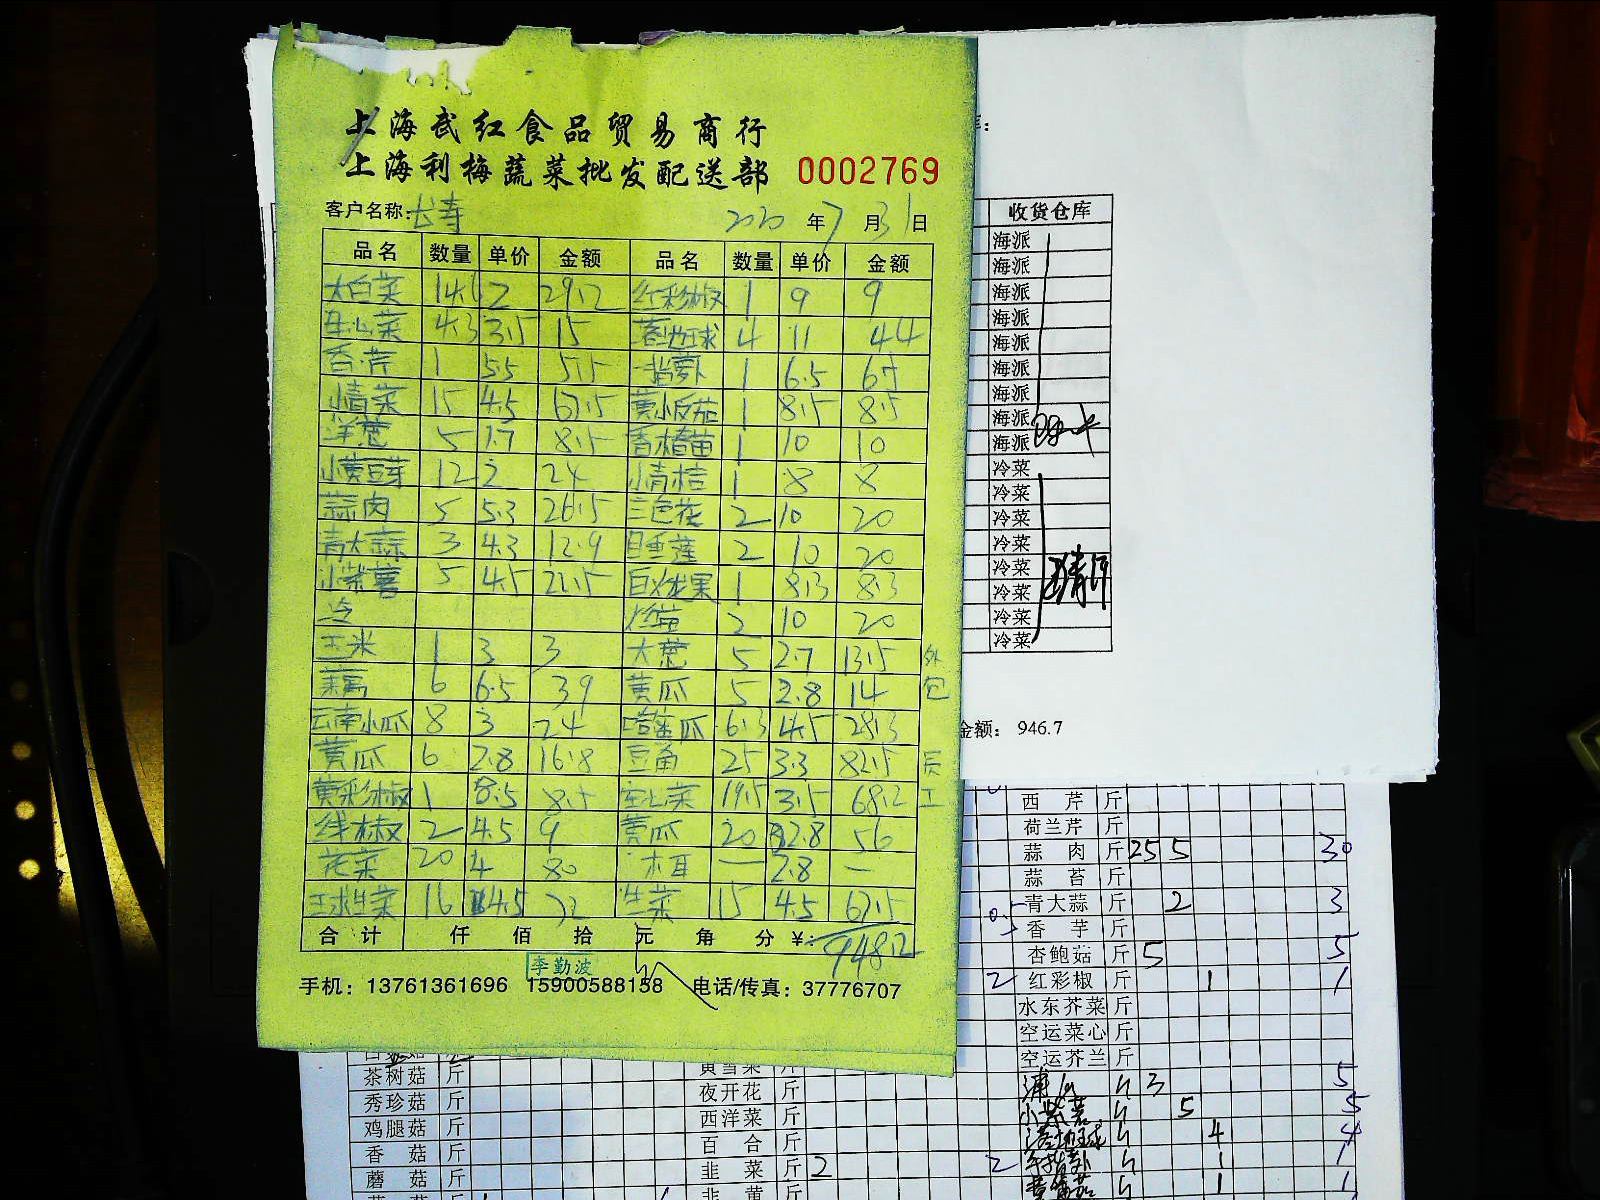 上海武红食品贸易商行
上海利梅蔬菜批发配送部 0002769
客户名称: 长寿 2020 年 7 月 31 日
品名 数量 单价 金额 品名 数量 单价 金额
大白菜 14.6 2 29.2 红彩椒 1 9 9
4.3 3.5 15 4 11 44
香芹 1 5.5 5.5 1 6.5 6.5
小青菜 15 4.5 67.5 黄小番茄 1 8.5 8.5
洋葱 5 1.7 8.5 1 10 10
小黄豆芽 12 2 24 小青桔 1 8 8
蒜肉 5 5.3 26.5 三色花 2 10 20
青大蒜 3 4.3 12.9 睡莲 2 10 20
小紫薯 5 4.5 22.5 白火龙果 1 8.3 8.3
冷 2 10 20
玉米 1 3 3 大葱 5 2.7 13.5
莲藕 6 6.5 39 黄瓜 5 2.8 14
云南小瓜 8 3 24 6.3 4.5 28.3
黄瓜 6 2.8 16.8 豆角 25 3.3 82.5
黄彩椒 1 8.5 8.5 19.5 3.5 68.2
线椒 2 4.5 9 黄瓜 20 2.8 56
花菜 20 4 80 木耳 — 2.8 —
玉球生菜 16 4.5 72 生菜 15 4.5 67.5
外包
员工
合计 仟 佰 拾 元 角 分 ¥: 948.2
李勤波
手机: 13761361696 15900588158 电话/传真: 37776707
收货仓库
海派
海派
海派
海派
海派
海派
海派
海派
海派
冷菜
冷菜
冷菜
冷菜
冷菜
冷菜
冷菜
冷菜
金额: 946.7
西芹 斤
荷兰芹 斤
蒜肉 斤 25 5 30
蒜苔 斤
青大蒜 斤 2 3
香芋 斤
杏鲍菇 斤 5 5
2 红彩椒 斤 1 1
水东芥菜 斤
空运菜心 斤
空运芥兰 斤
3 5
小紫薯 5 5
4 4
2 1 1
1 1
茶树菇 斤
秀珍菇 斤
鸡腿菇 斤
香菇 斤
蘑菇 斤
夜开花 斤
西洋菜 斤
百合 斤
韭菜 斤 2
韭黄 斤